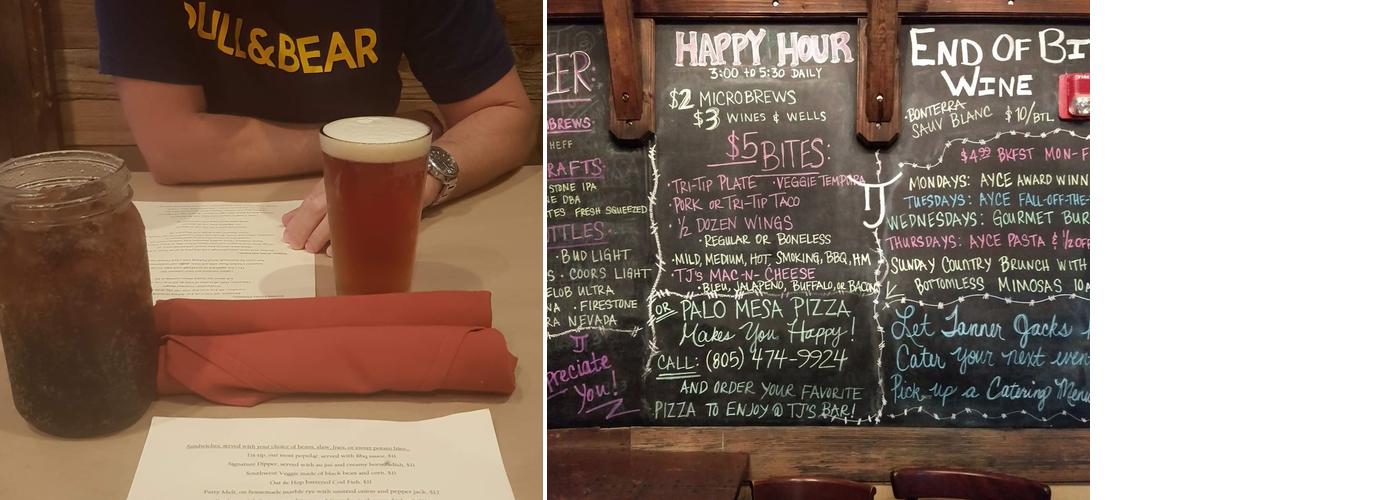 PULL&BEAR
Sandwiches, served with your choice of beans, slaw, fries, or sweet potato bites...
Tri-tip, our most popular, served with Bbq sauce, $11
Signature Dipper, served with au jus and creamy horseradish, $11
Southwest Veggie made of black bean and corn, $11
Oat & Hop battered Cod Fish, $11
Patty Melt, on homemade marble rye with sauteed onion and pepper jack, $12
EER:
BREWS
HEFF
RAFTS:
STONE IPA
E DBA
TES FRESH SQUEEZED
TTLES:
· BUD LIGHT
S · COORS LIGHT
ELOB ULTRA
NA · FIRESTONE
RA NEVADA
TJ
preciate
You!
HAPPY HOUR
3:00 to 5:30 DAILY
$2 MICROBREWS
$3 WINES & WELLS
$5 BITES:
·TRI-TIP PLATE ·VEGGIE TEMPURA
·PORK OR TRI-TIP TACO
·½ DOZEN WINGS
·REGULAR OR BONELESS
·MILD, MEDIUM, HOT, SMOKING, BBQ, HM
·TJ'S MAC-N-CHEESE
·BLEU, JALAPEÑO, BUFFALO, OR BACON
OR PALO MESA PIZZA
Makes You Happy!
CALL: (805) 474-9924
AND ORDER YOUR FAVORITE
PIZZA TO ENJOY @ TJ'S BAR!
TJ
END OF BI
WINE
·BONTERRA
SAUV BLANC $10/BTL
$4.99 BKFST MON-F
MONDAYS: AYCE AWARD WINN
TUESDAYS: AYCE FALL-OFF-THE-
WEDNESDAYS: GOURMET BUR
THURSDAYS: AYCE PASTA & ½ OFF
SUNDAY COUNTRY BRUNCH WITH
BOTTOMLESS MIMOSAS 10A
Let Tanner Jacks
Cater your next even
Pick up a Catering Menu